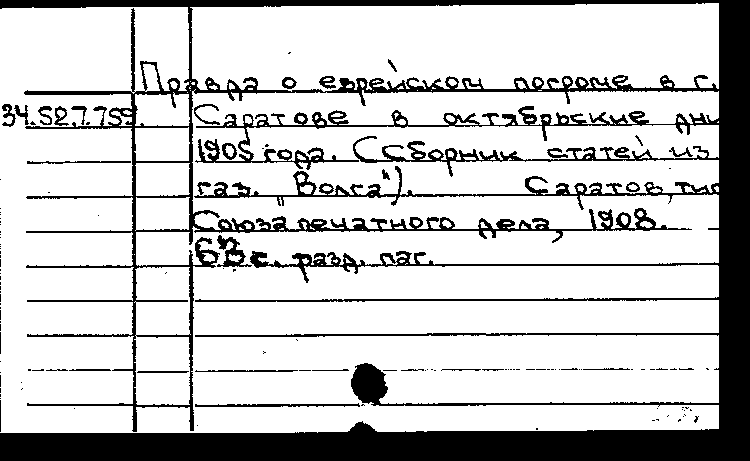 Правда о еврейском погроме в г.
34.52.7.759. Саратове в октябрьские дни
1905 года. (Сборник статей из
газ. "Волга"). Саратов, тип
Союза печатного дела, 1908.
с. разд. паг.